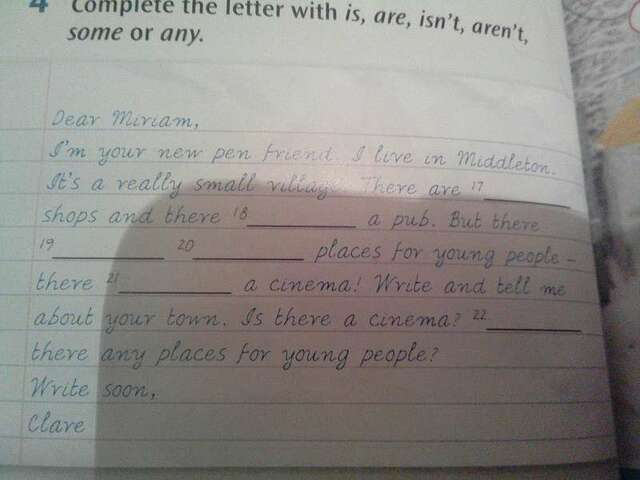 4 Complete the letter with is, are, isn't, aren't,
some or any.
Dear Miriam,
I'm your new pen friend. I live in Middleton.
It's a really small village. There are 17 __________
shops and there 18 __________ a pub. But there
19 __________ 20 __________ places for young people –
there 21 __________ a cinema! Write and tell me
about your town. Is there a cinema? 22 __________
there any places for young people?
Write soon,
Clare